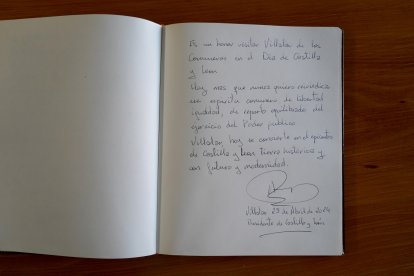 Es un honor visitar Villalar de los
Comuneros en el Día de Castilla
y León
Hoy más que nunca quiero reivindicar
ese espíritu comunero de libertad
igualdad, de reparto equilibrado del
ejercicio del Poder público
Villalar, hoy se convierte en el epicentro
de Castilla y León tierra histórica y
con futuro y modernidad.
Villalar 23 de Abril de 2024
Presidente de Castilla y León